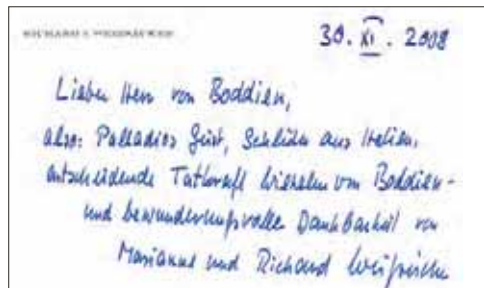 RICHARD v. WEIZSÄCKER
30. XI. 2008
Lieber Herr von Boddien,
also: Palladios Geist, Schlüter aus Italien,
entscheidende Tatkraft Wilhelm von Boddien -
und bewunderungsvolle Dankbarkeit von
Marianne und Richard Weizsäcker